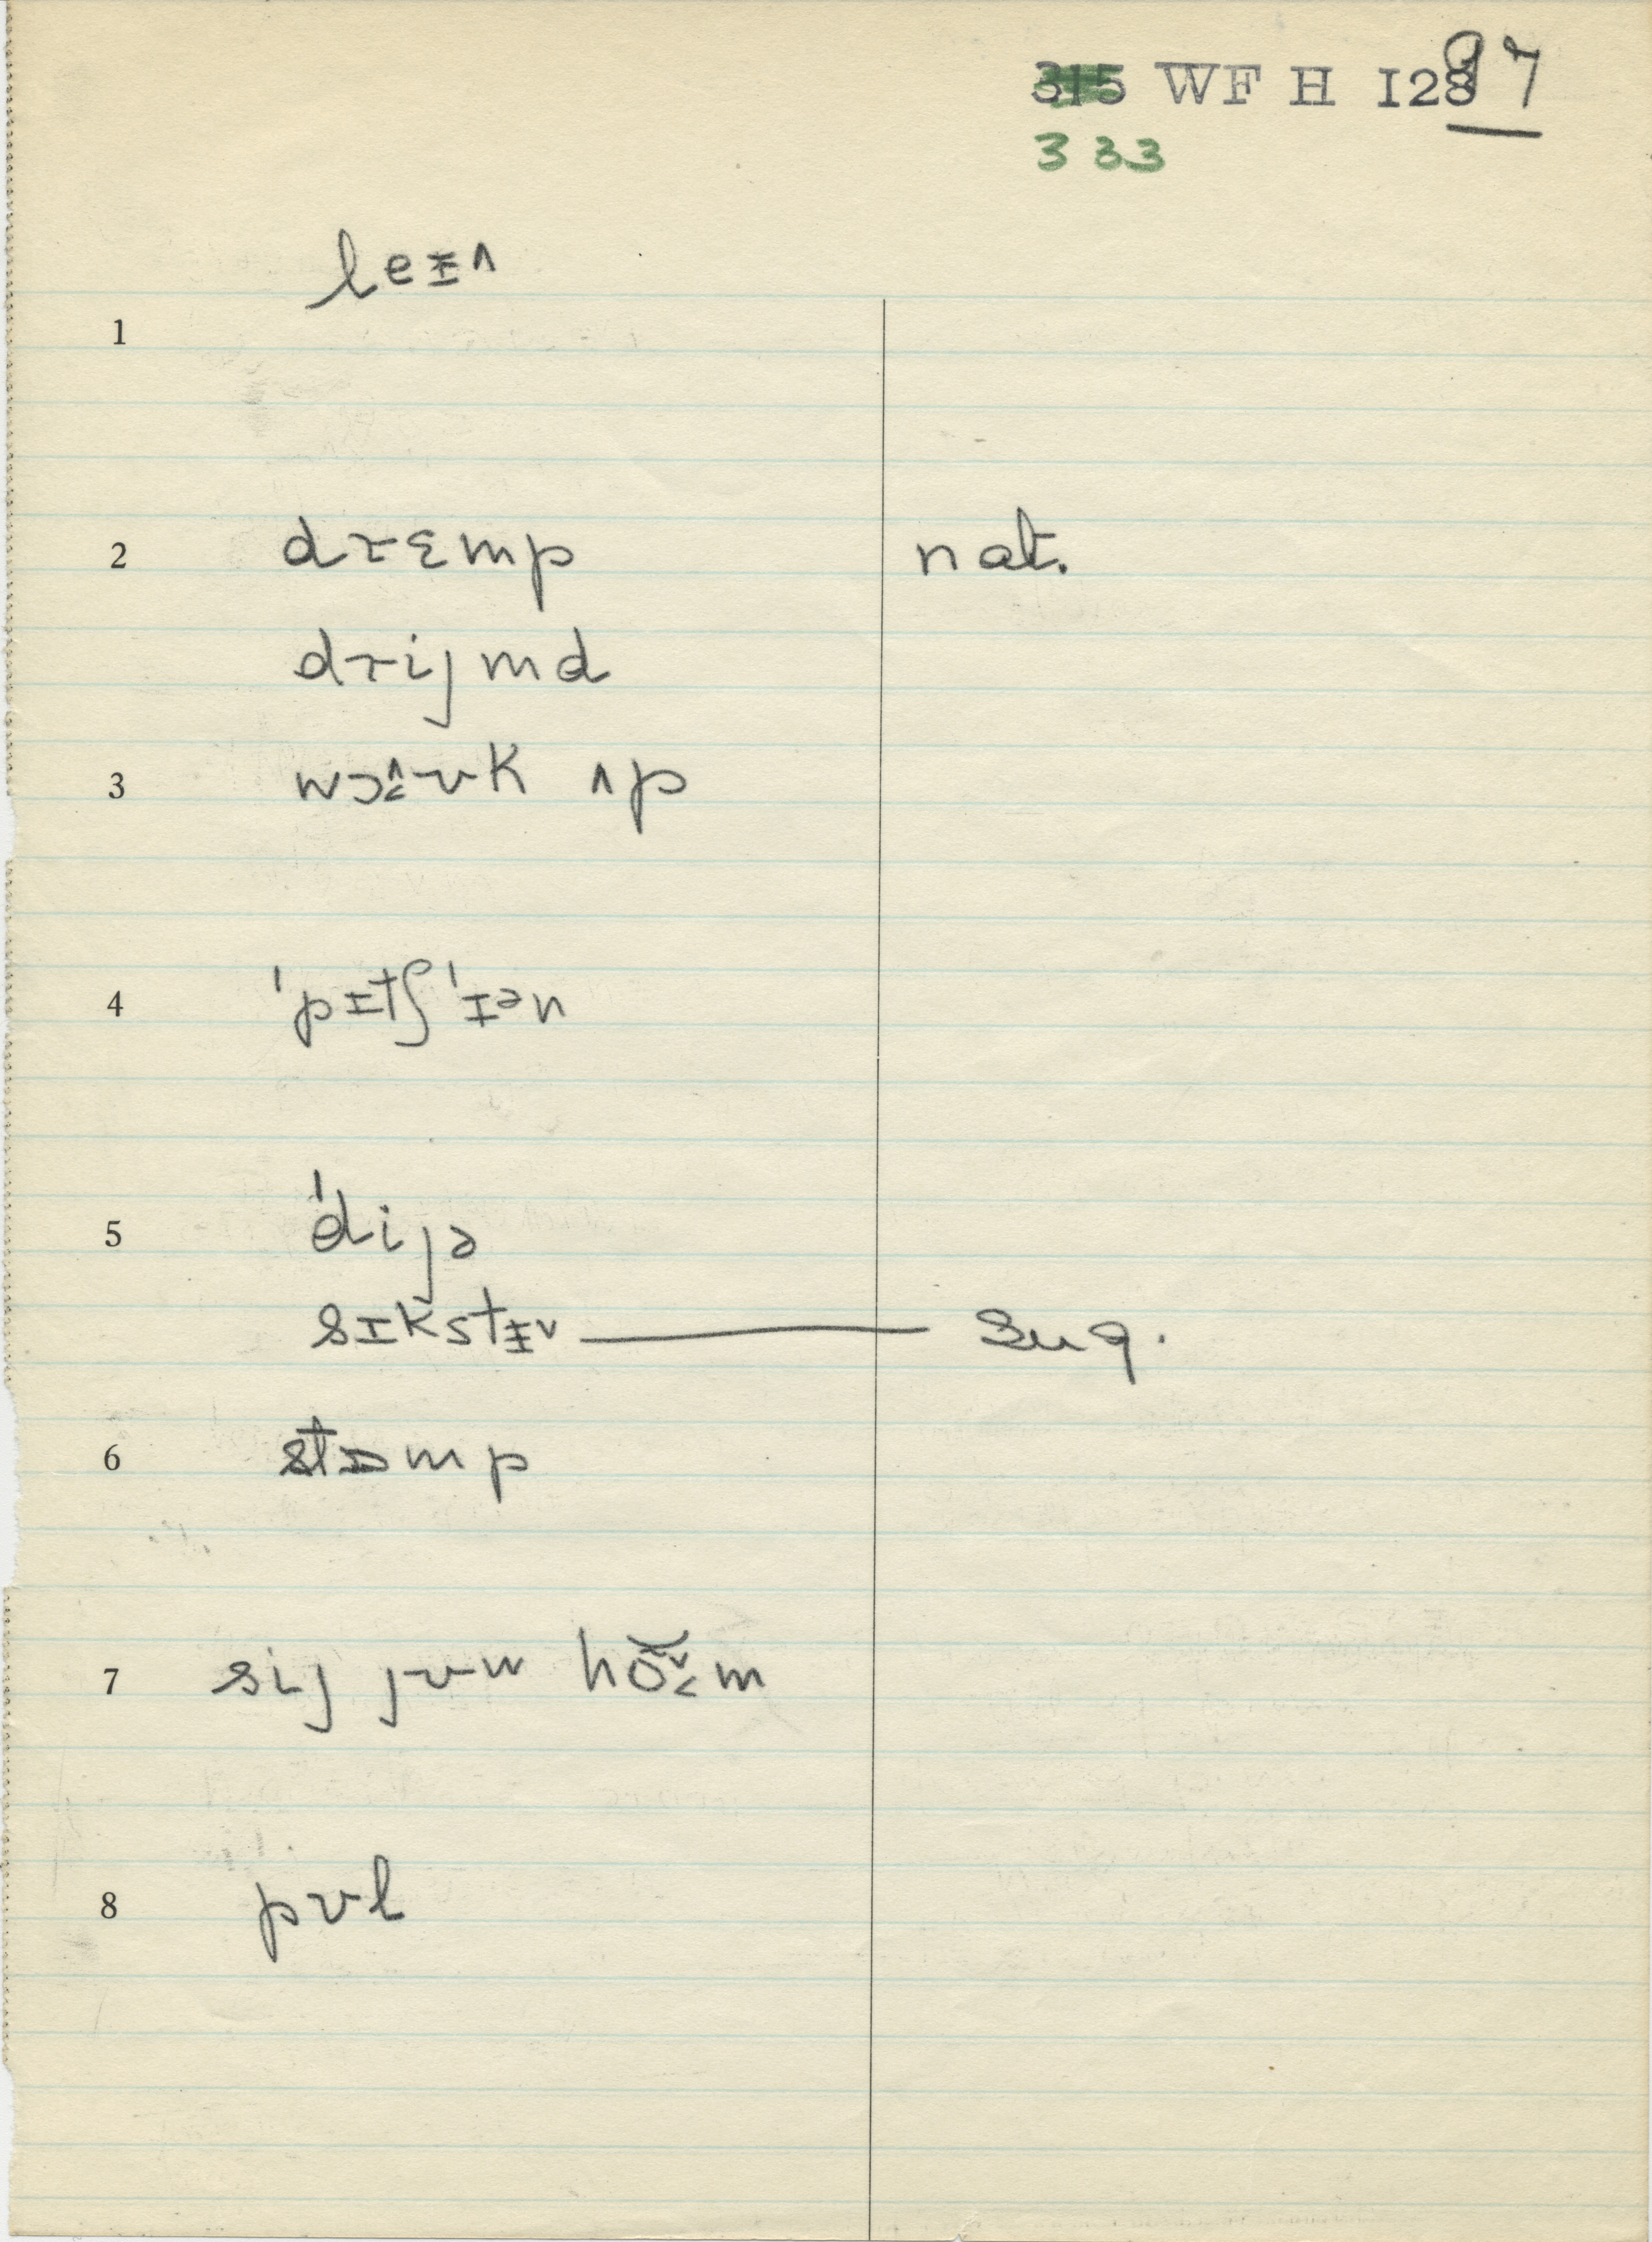 315 WF H I28 97
333
leɪ̵^
1
2 drɛmp nat.
drijmd
3 wɔ^˂ʊk ʌp
4 'pɪtʃ'ɪən
5 'dijə
sɪkstɪ̵˅ — sug.
6 stɒmp
7 sij jʊw hŏ˅˂m
8 pʊl